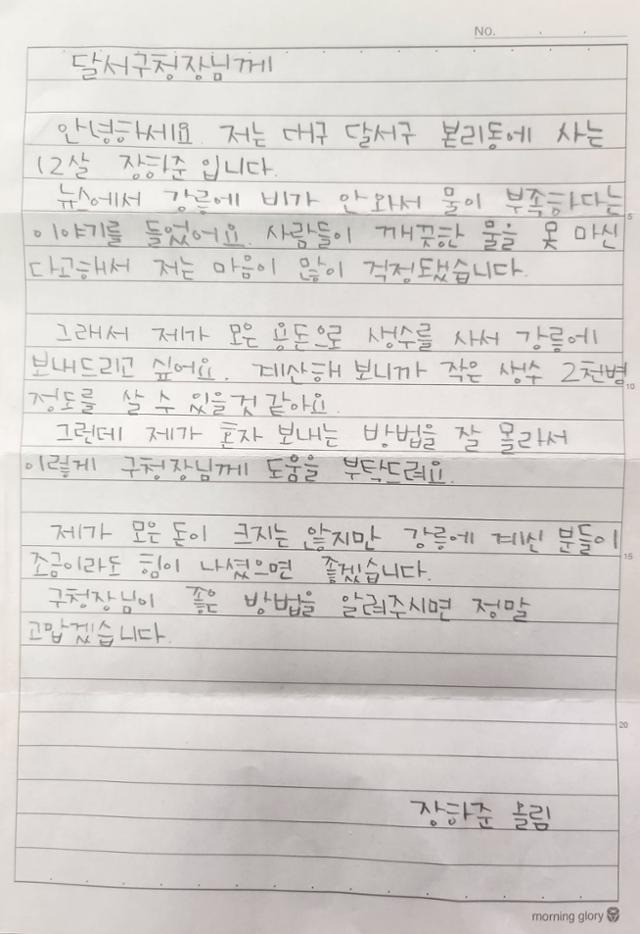 NO.
달서구청장님께
안녕하세요. 저는 대구 달서구 본리동에 사는
12살 장하준입니다.
뉴스에서 강릉에 비가 안 와서 물이 부족하다는
5
이야기를 들었어요. 사람들이 깨끗한 물을 못 마신
다고해서 저는 마음이 많이 걱정됐습니다.
그래서 제가 모은 용돈으로 생수를 사서 강릉에
보내드리고 싶어요. 계산해 보니까 작은 생수 2천병
10
정도를 살 수 있을것 같아요.
그런데 제가 혼자 보내는 방법을 잘 몰라서
이렇게 구청장님께 도움을 부탁드려요.
제가 모은 돈이 크지는 않지만 강릉에 계신 분들이
15
조금이라도 힘이 나셨으면 좋겠습니다.
구청장님이 좋은 방법을 알려주시면 정말
고맙겠습니다.
20
장하준 올림
morning glory